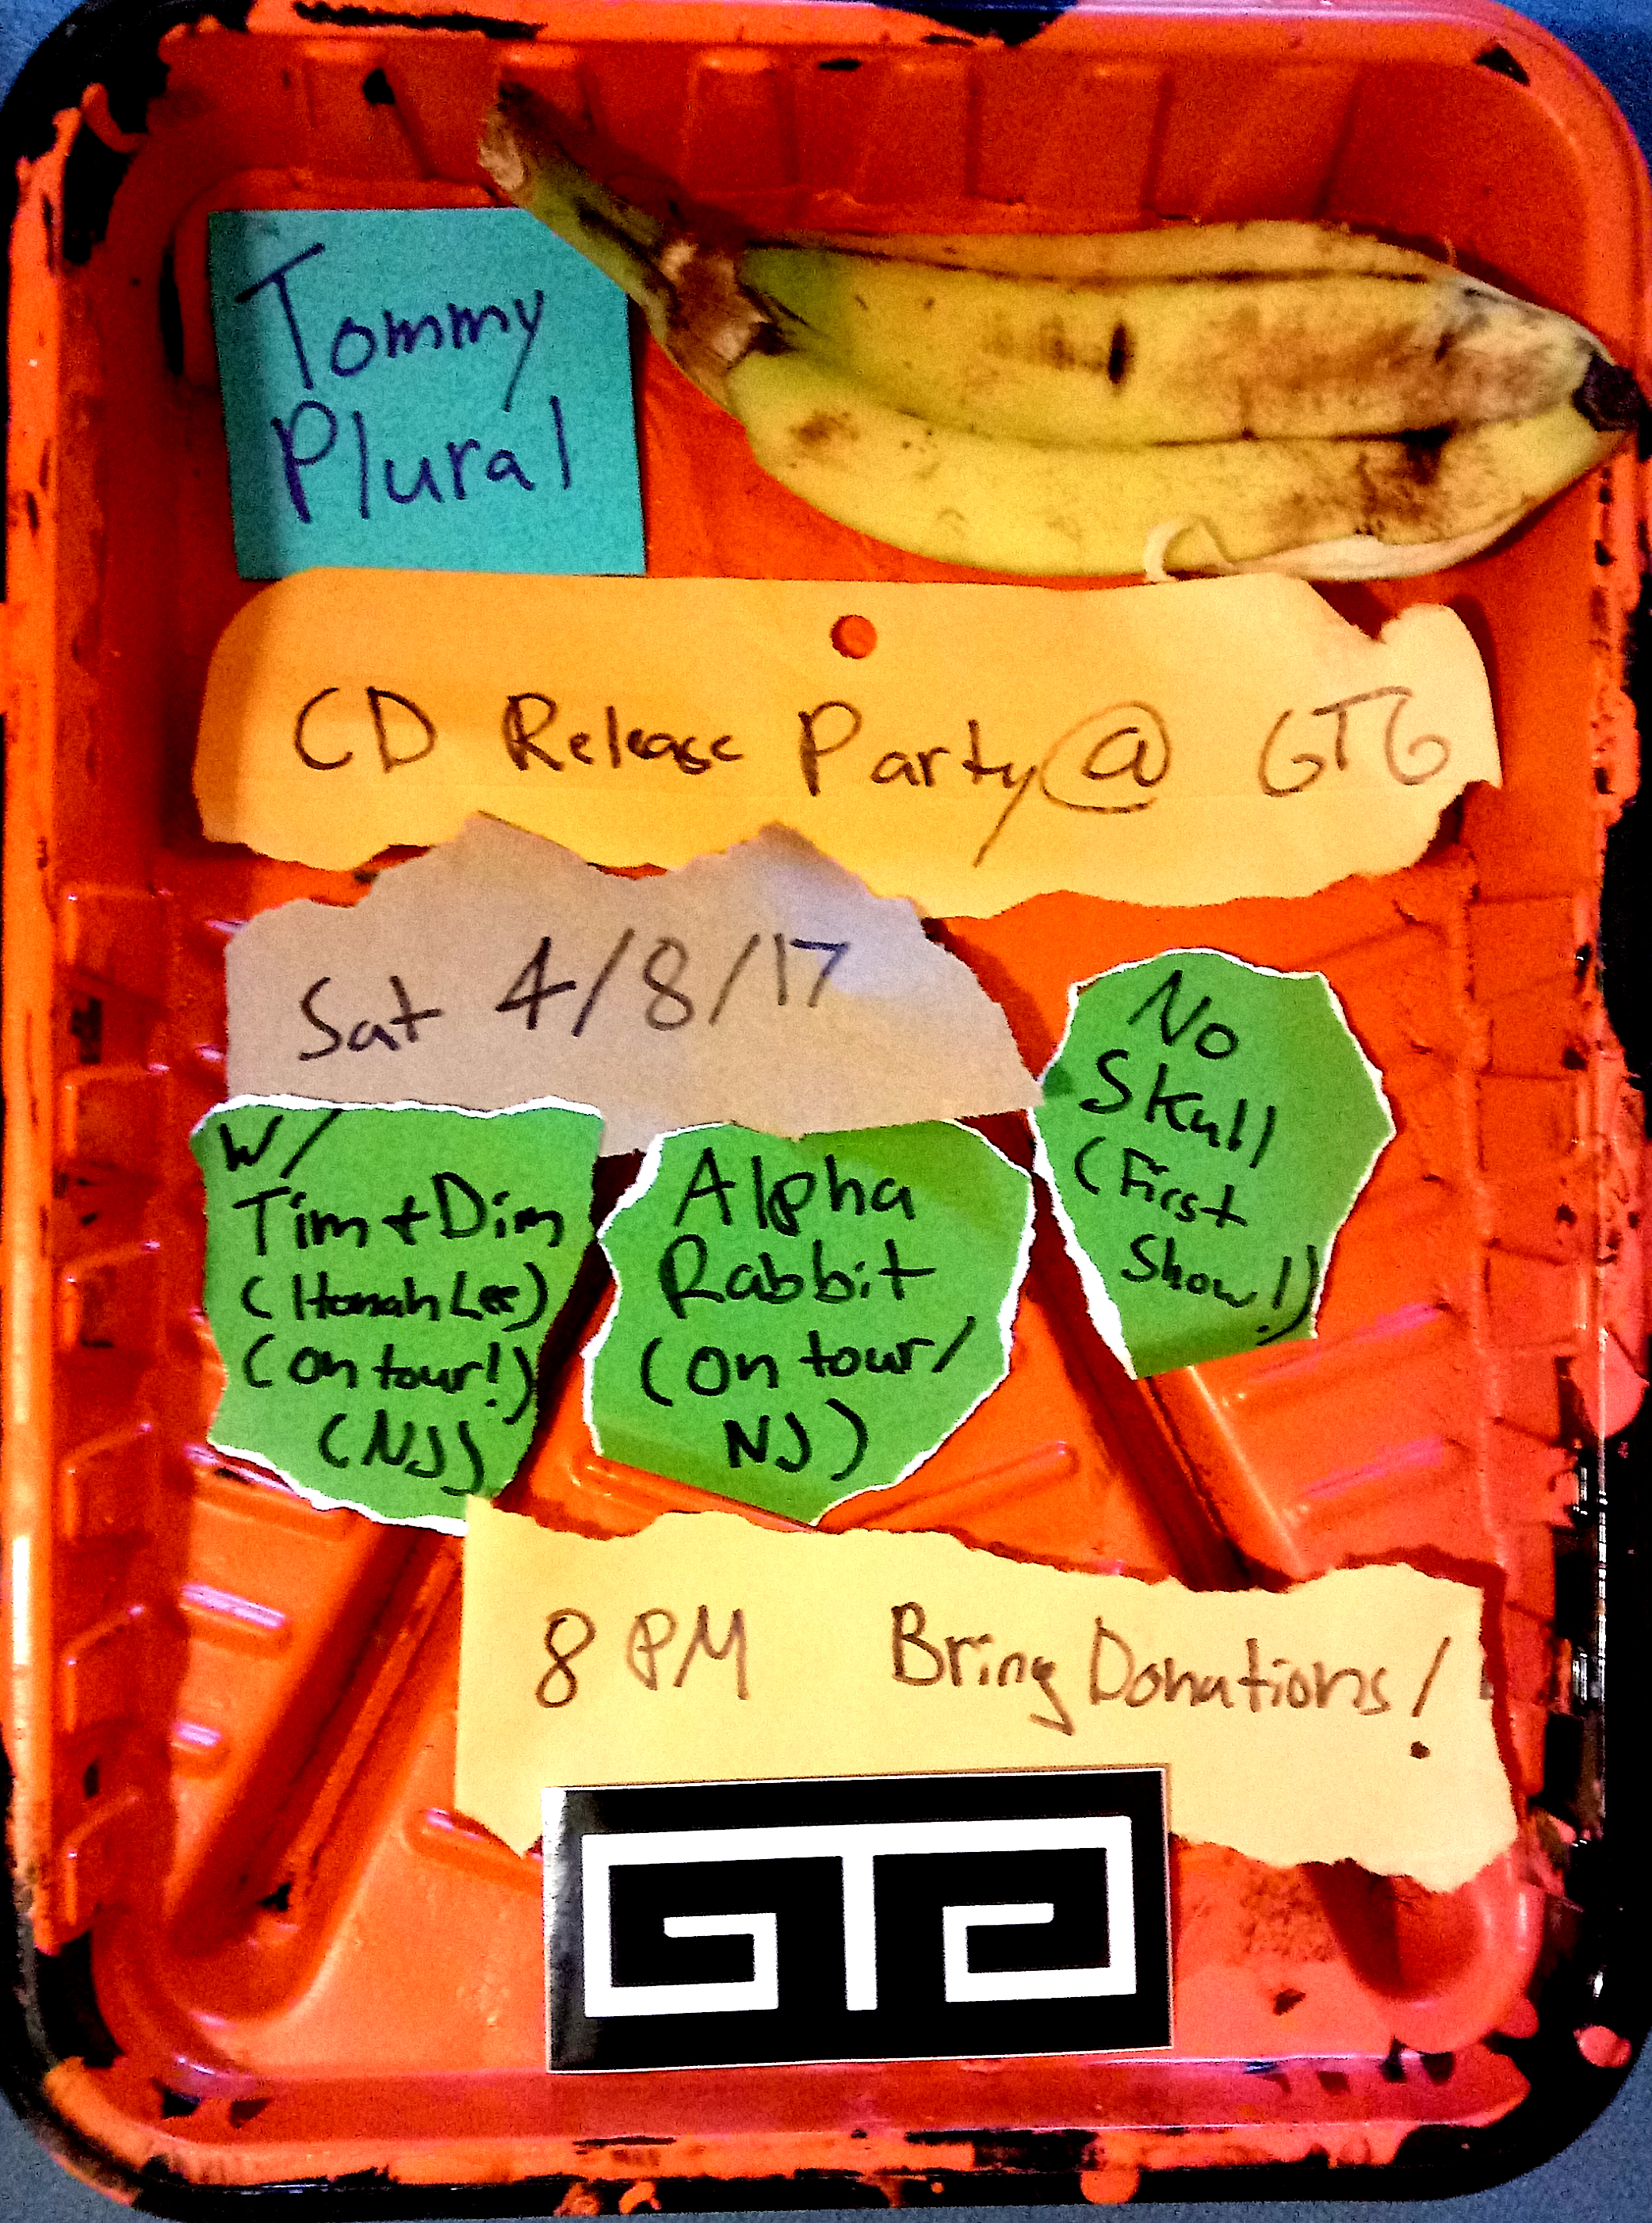 Tommy
Plural
CD Release Party @ GTG
Sat 4/8/17
No
Skull
(First
Show!)
w/
Tim + Dim
(Hanah Lee)
(on tour!)
(NJ)
Alpha
Rabbit
(on tour/
NJ)
8 PM Bring Donations!
GTG